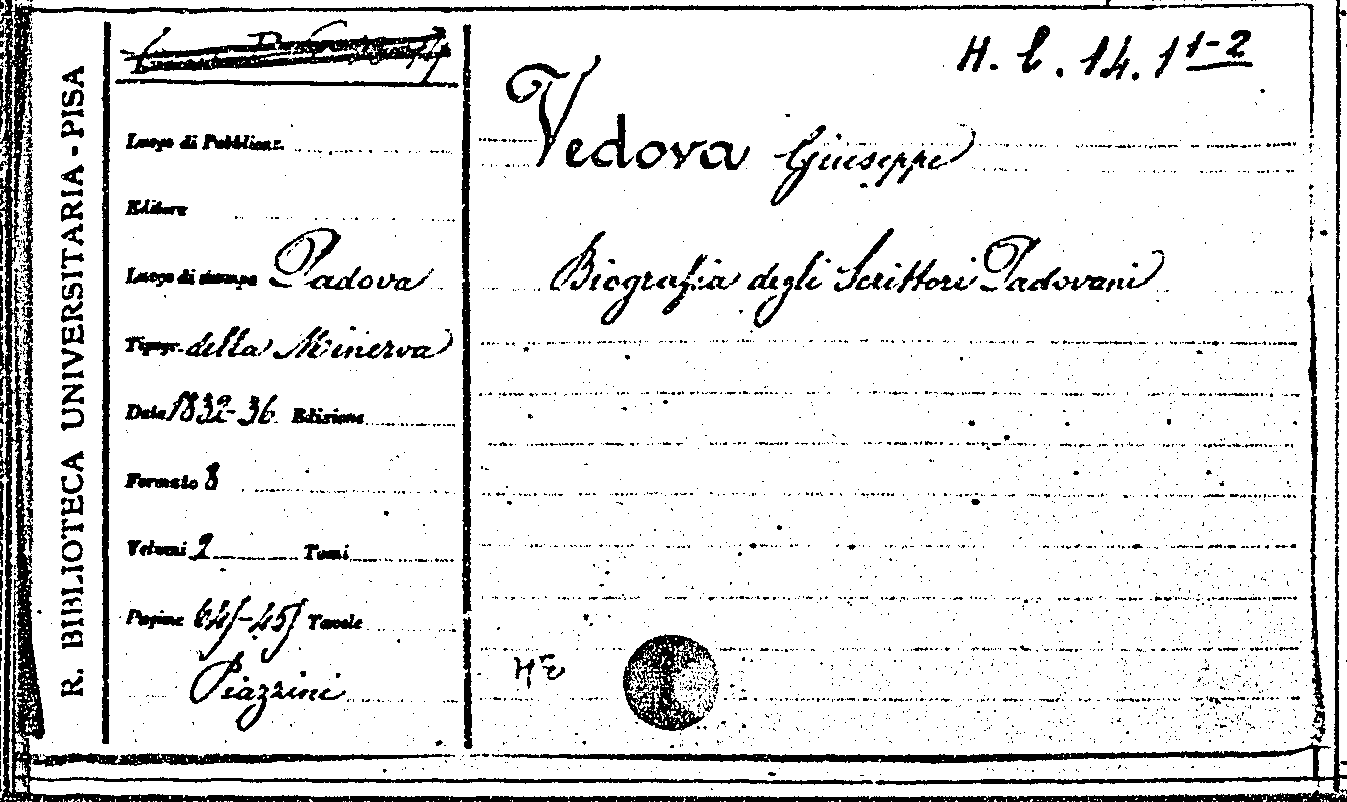 R. BIBLIOTECA UNIVERSITARIA - PISA
H. l. 14. 1 1-2
Luogo di Pubblicaz.
Editore
Luogo di stampa Padova
Tipogr. della Minerva
Data 1832-36 Edizione
Formato 8
Volumi 2 Tomi
Pagine Tavole
Piazzini
Vedova Giuseppe
Biografia degli Scrittori Padovani